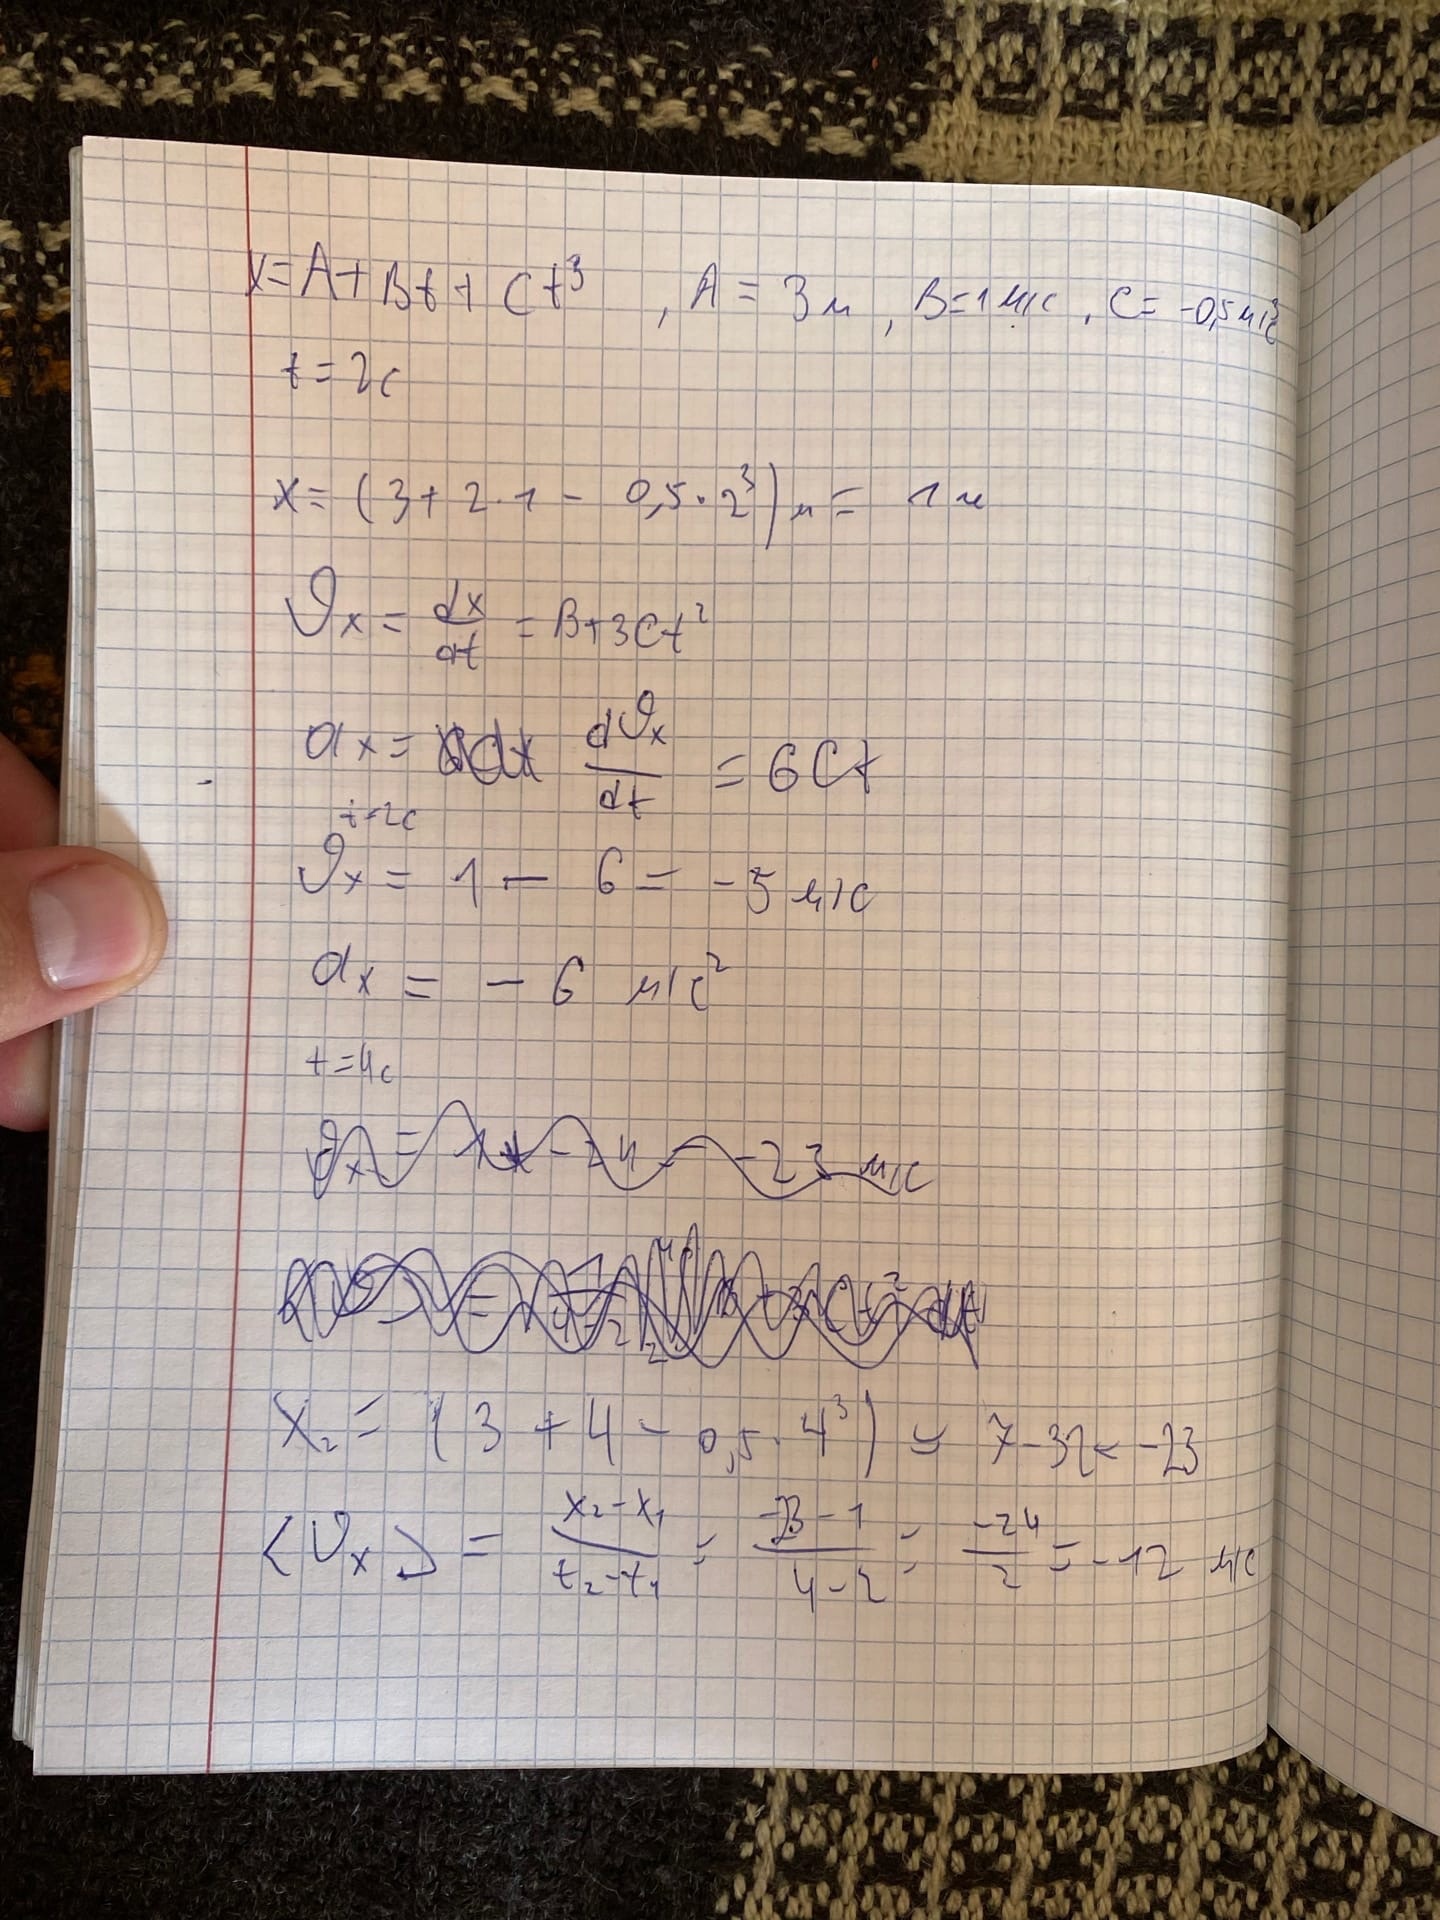 x = A + Bt + Ct³ , A = 3м , B = 1 м/с , C = -0,5 м/с³
t = 2с
x = (3 + 2·1 - 0,5·2³) м = 1 м
υx = dx/dt = B + 3Ct²
ax = dυx/dt = 6Ct
t=2с
υx = 1 - 6 = -5 м/с
ax = - 6 м/с²
t = 4с
υx = 1 - 24 = -23 м/с
X₂ = (3 + 4 - 0,5·4³) = 7 - 32 = -23
<υx> = x₂-x₁/t₂-t₁ = -23-1/4-2 = -24/2 = -12 м/с